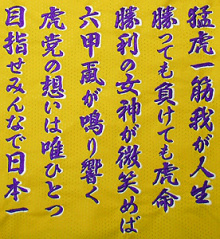 猛虎一筋我が人生
勝っても負けても虎命
勝利の女神が微笑めば
六甲颪が鳴り響く
虎党の想いは唯ひとつ
目指せみんなで日本一